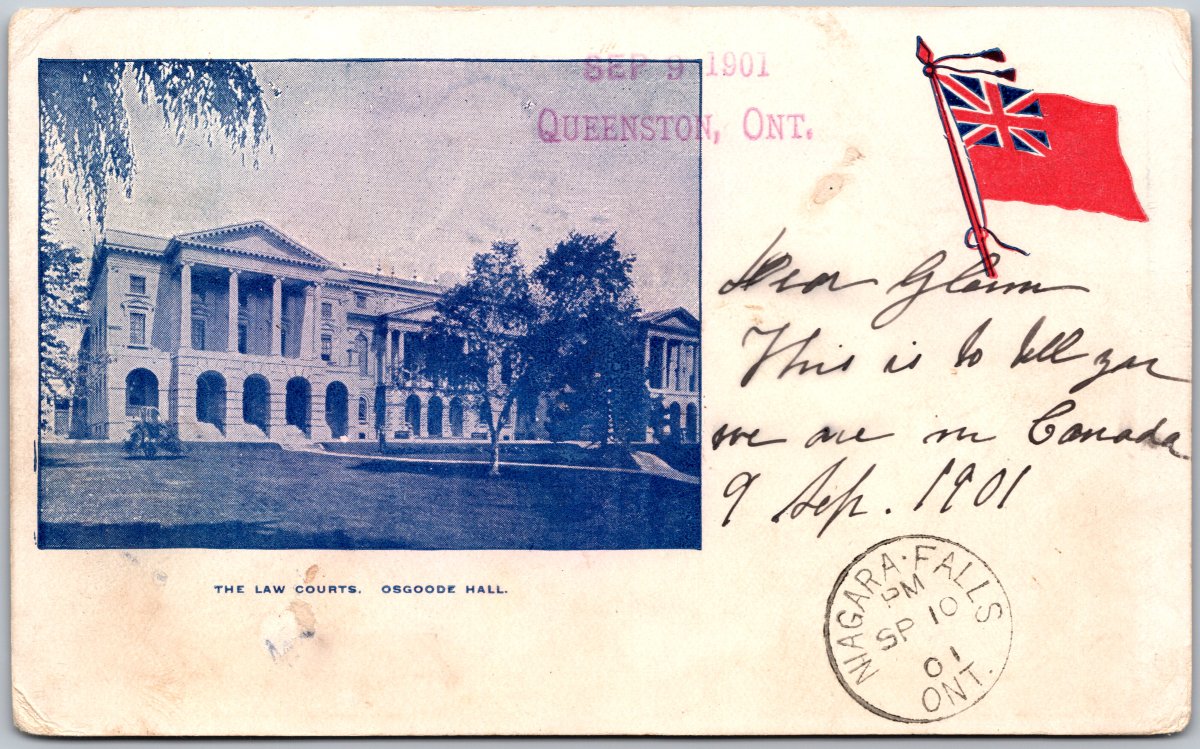 SEP 9 1901
QUEENSTON, ONT.
Dear Glenn
This is to tell you
we are in Canada
9 Sep. 1901
THE LAW COURTS. OSGOODE HALL.
NIAGARA·FALLS
PM
SP 10
01
ONT.